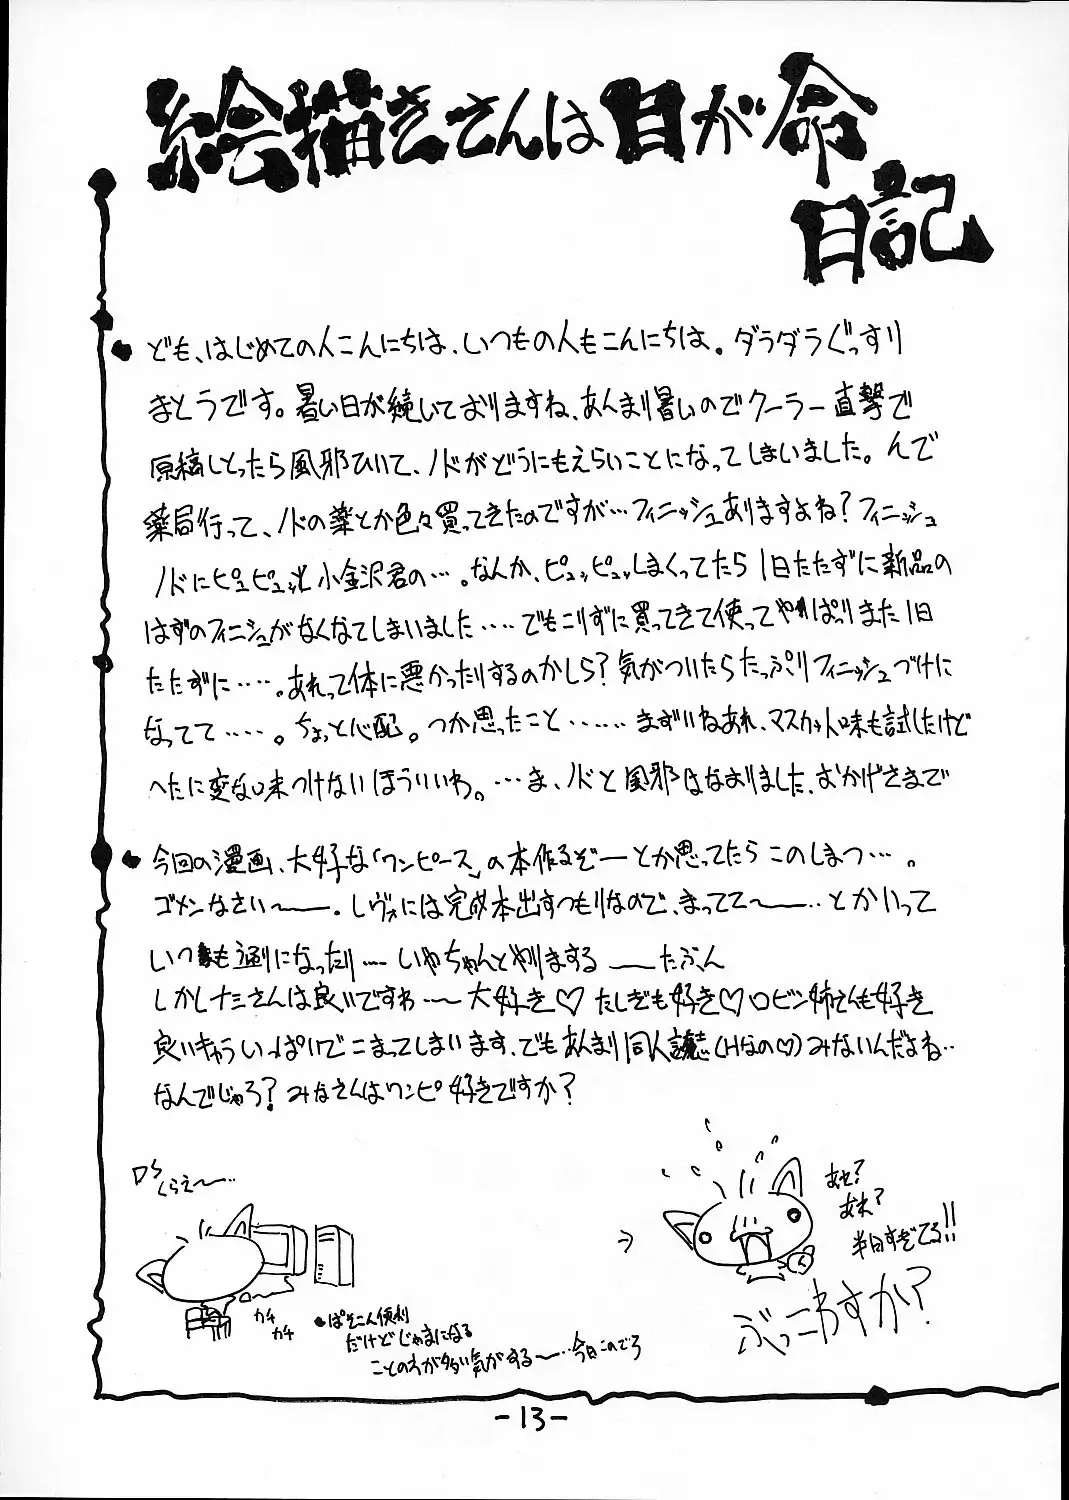 絵描きさんは目が命
日記
● ども、はじめての人こんにちは、いつもの人もこんにちは。ダラダラぐっすり
まとうです。暑い日が続いておりますね、あんまり暑いのでクーラー直撃で
原稿しとったら風邪ひいて、ノドがどうにもえらいことになってしまいました。んで
薬局行って、ノドの薬とか色々買ってきたのですが…フィニッシュありますよね?フィニッシュ
ノドにピュピュッと小金沢君の…。なんか、ピュッピュッしまくってたら1日たたずに新品の
はずのフィニシュがなくなてしまいました‥‥でもこりずに買ってきて使ってやっぱりまた1日
たたずに‥‥。あれって体に悪かったりするのかしら?気がついたらたっぷりフィニッシュづけに
なってて‥‥。ちょっと心配。つか思ったこと‥‥‥まずいねあれ、マスカット味も試したけど
へたに変な味つけないほういいわ。…ま、ノドと風邪はなおりました、おかげさまで
● 今回の漫画、大好な「ワンピース」の本作るぞーとか思ってたらこのしまつ…。
ゴメンなさい〜ー。レヴォには完成本出すつもりなので、まってて〜ー‥とかいって
いつも通りになったり…いやちゃんとやりまする ーたぶん
しかしナミさんは良いですわ〜大好き♡たしぎも好き♡ロビン姉さんも好き
良いキャラいっぱいでこまってしまいます、でもあんまり同人誌(Hなの♡)みないんだよね‥
なんでじゃろ?みなさんはワンピ好きですか?
くらえ〜‥
カチ
カチ
● ぱそこん便利
だけどじゃまになる
ことのが多い気がする〜‥今日このごろ
→
あせ?
あれ?
半日すぎてる!!
ぶっこわすか?
-13-